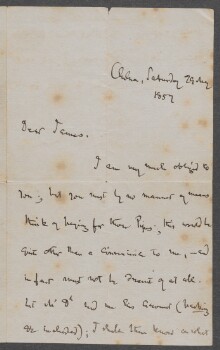 Clebra, Saturday 29 Aug
1857
Dear James.
I am very much obliged to
you, but you must by no manner of means
think of paying for those Pipes; this would be
quite other than a Convenience to me, and
in fact must not be at all.
me the Account (
&c included); I shall then know what